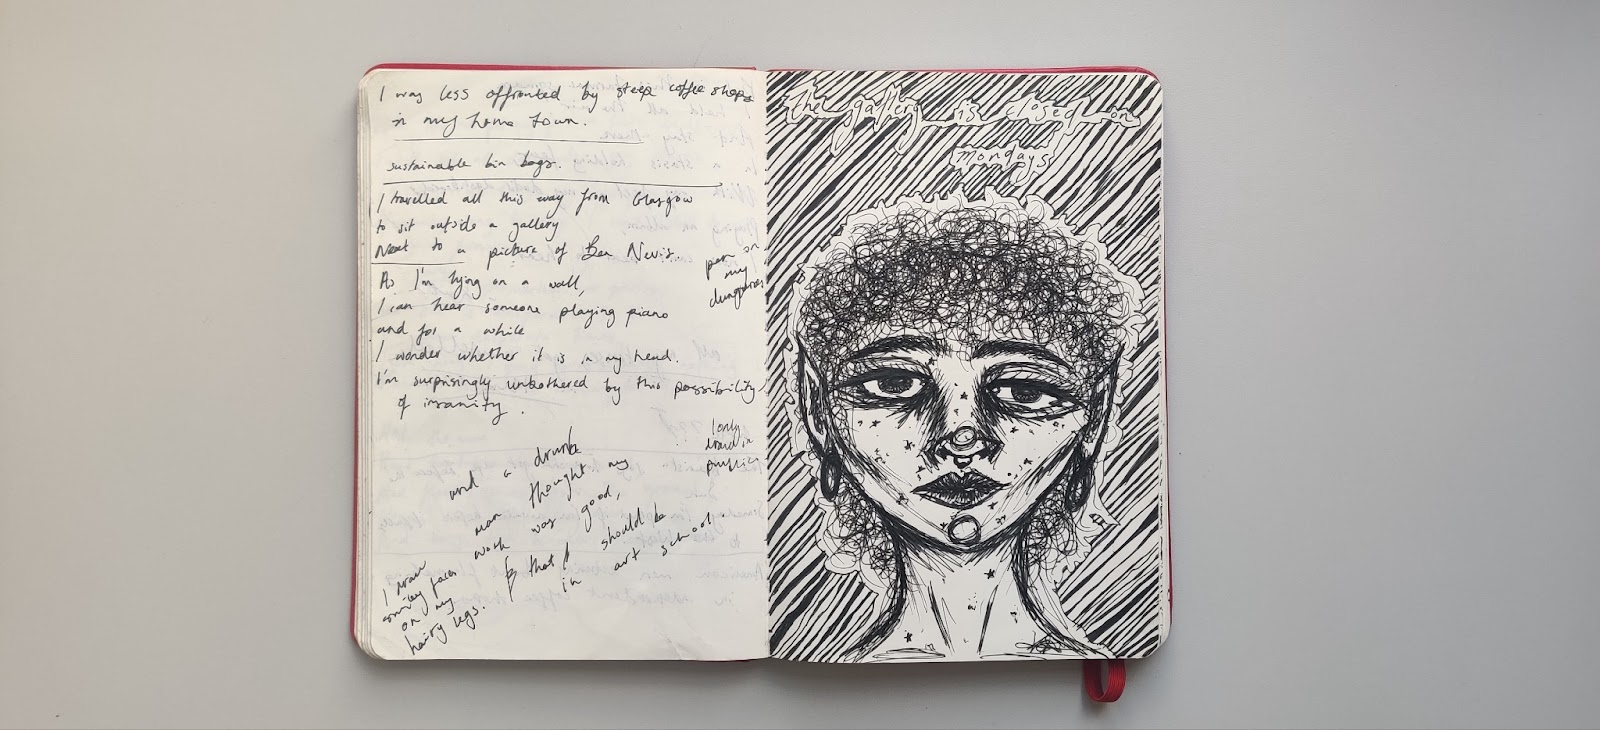 I was less affronted by steep coffee shops
in my home town.
sustainable bin bags.
I travelled all this way from Glasgow
to sit outside a gallery
Next to a picture of Ben Nevis.
As I'm lying on a wall,
I can hear someone playing piano
and for a while
I wonder whether it is in my head.
I'm surprisingly unbothered by this possibility
of insanity.
pen on
my
dungarees
I only
in
public
and a drunk
man thought my
work was good,
& that I should be
in art school.
I draw
smiley faces
on my
hairy legs.
the gallery is closed on
mondays